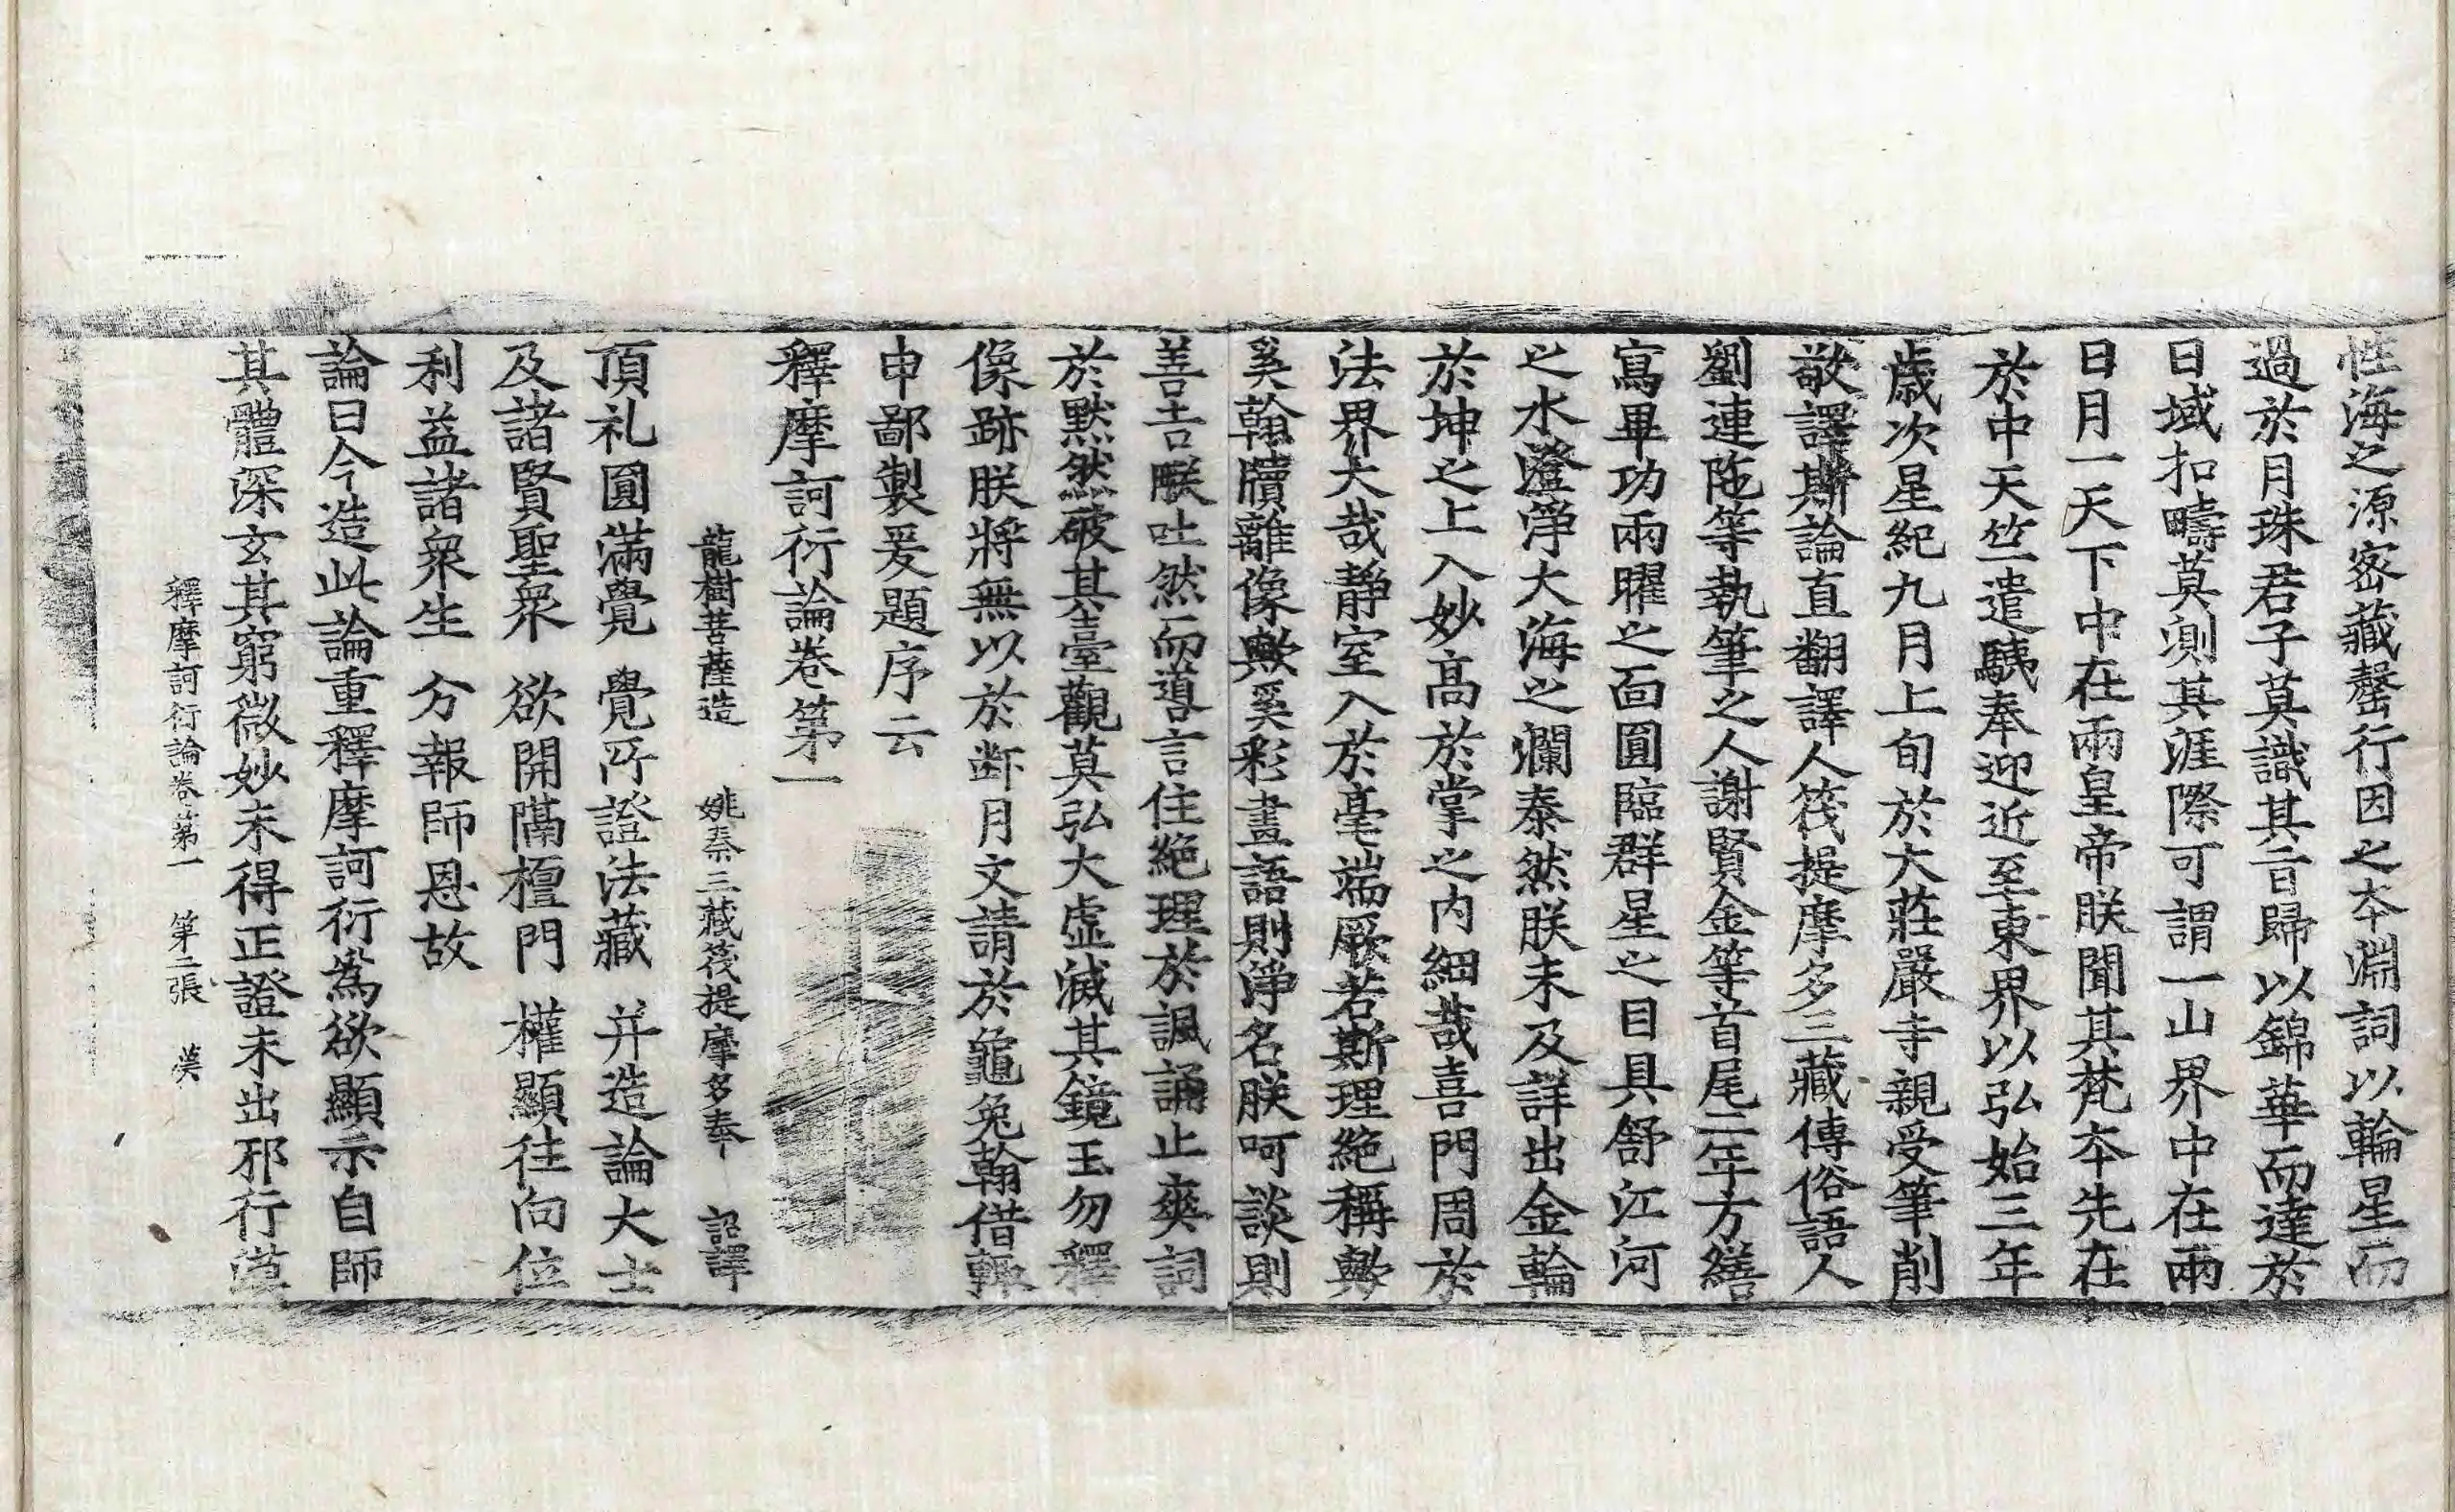 性海之源密藏罄行因之夲淵詞以輪星而
過於月珠君子莫識其旨歸以錦華而達於
日域扣疇莫測其涯際可謂一山界中在兩
日月一天下中在兩皇帝朕聞其梵夲先在
於中天竺遣駛奉迎近至東界以弘始三年
歲次星紀九月上旬於大莊嚴寺親受筆削
敬譯斯論直翻譯人筏提摩多三藏傳俗語人
劉連陁等執筆之人謝賢金等首尾二年方繕
寫畢功兩曜之面圓臨群星之目具舒江河
之水澄淨大海之瀾泰然朕未及詳出金輪
於坤之上入妙高於掌之内細哉喜門周於
法界大哉靜室入於毫端厥若斯理絶稱歟
奚翰牘離像歟奚彩畫語則淨名朕呵談則
善吉朕吐然而噵言住絶理於諷誦止爽詞
於默然破其臺觀莫弘大虛滅其鏡玉勿釋
像跡朕將無以於斷月文請於龜兔翰借輙
申鄙製爰題序云
釋摩訶衍論卷第一
龍樹菩薩造 姚秦三藏筏提摩多奉 詔譯
頂礼圓滿覺 覺所證法藏 并造論大士
及諸賢聖衆 欲開隔檀門 權顯往向位
利益諸衆生 分報師恩故
論曰今造此論重釋摩訶衍爲欲顯示自師
其體深玄其窮微妙未得正證未出邪行
釋摩訶衍論卷第一 第二張 漢